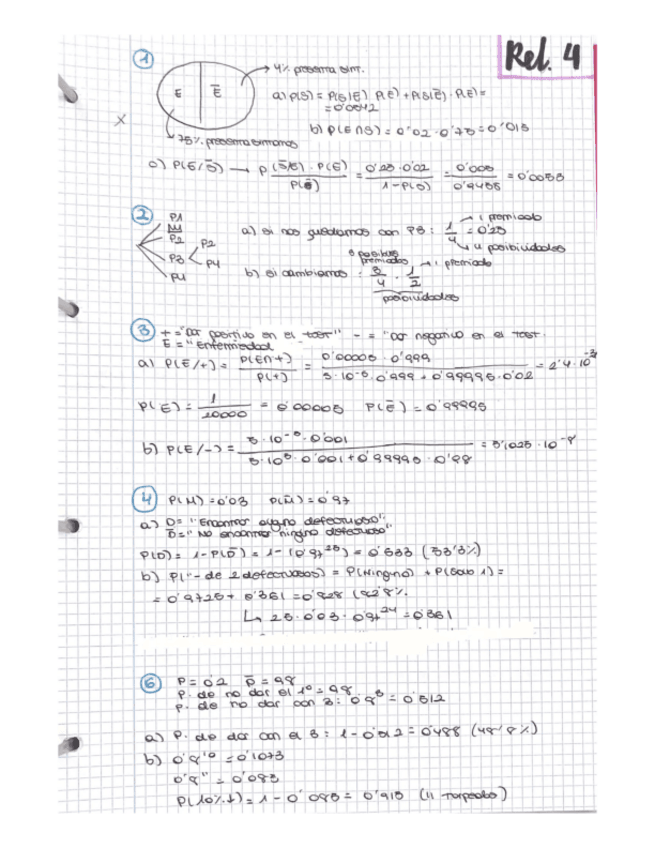 Rel. 4
①
→ 4% presenta sínt.
E Ē
a) P(S) = P(S/E) · P(E) + P(S/Ē) · P(Ē) =
= 0'0542
X
b) P(E∩S) = 0'02 · 0'75 = 0'015
75% presenta síntomas
c) P(E/S̄) → P(S̄/E) · P(E) / P(S̄) = 0'25 · 0'02 / 1-P(S) = 0'005 / 0'9458 = 0'0053
②
P1
P2
P3
P4
P2
P4
a) si nos quedamos con P3 : 1/4 = 0'25
→ 1 premiado
→ 4 posibilidades
b) si cambiamos : 3/4 · 1/2
3 posibles premiados
→ 1 premiado
posibilidades
③ + = "Dar positivo en el test" - = "Dar negativo en el test.
E = "Enfermedad
a) P(E/+) = P(E∩+) / P(+) = 0'00005 · 0'999 / 5·10⁻⁵ · 0'999 + 0'99995 · 0'02 = 2'4·10⁻³
P(E) = 1/20000 = 0'00005 P(Ē) = 0'99995
b) P(E/-) = 5·10⁻⁵ · 0'001 / 5·10⁵ · 0'001 + 0'99995 · 0'98 = 5'1025 · 10⁻⁸
④ P(M) = 0'03 P(M̄) = 0'97
a) D = "Encontrar alguno defectuoso".
D̄ = "No encontrar ningúno defectuoso"
P(D) = 1-P(D̄) = 1-(0'97²⁵) = 0'533 (53'3%)
b) P("- de 2 defectuosos) = P(Ninguno) + P(Solo 1) =
= 0'9725 + 0'361 = 0'828 (82'8%.
↳ 25 · 0'03 · 0'97²⁴ = 0'361
⑥ P = 0'2 P̄ = 98
P. de no dar el 1º = 98
P. de no dar con 3 : 0'8³ = 0'512
a) P. de dar con el 3 : 1-0'512 = 0'488 (48'8%)
b) 0'8¹⁰ = 0'1073
0'8¹¹ = 0'085
P(10%↓) = 1-0'085 = 0'915 (11 torpedos)